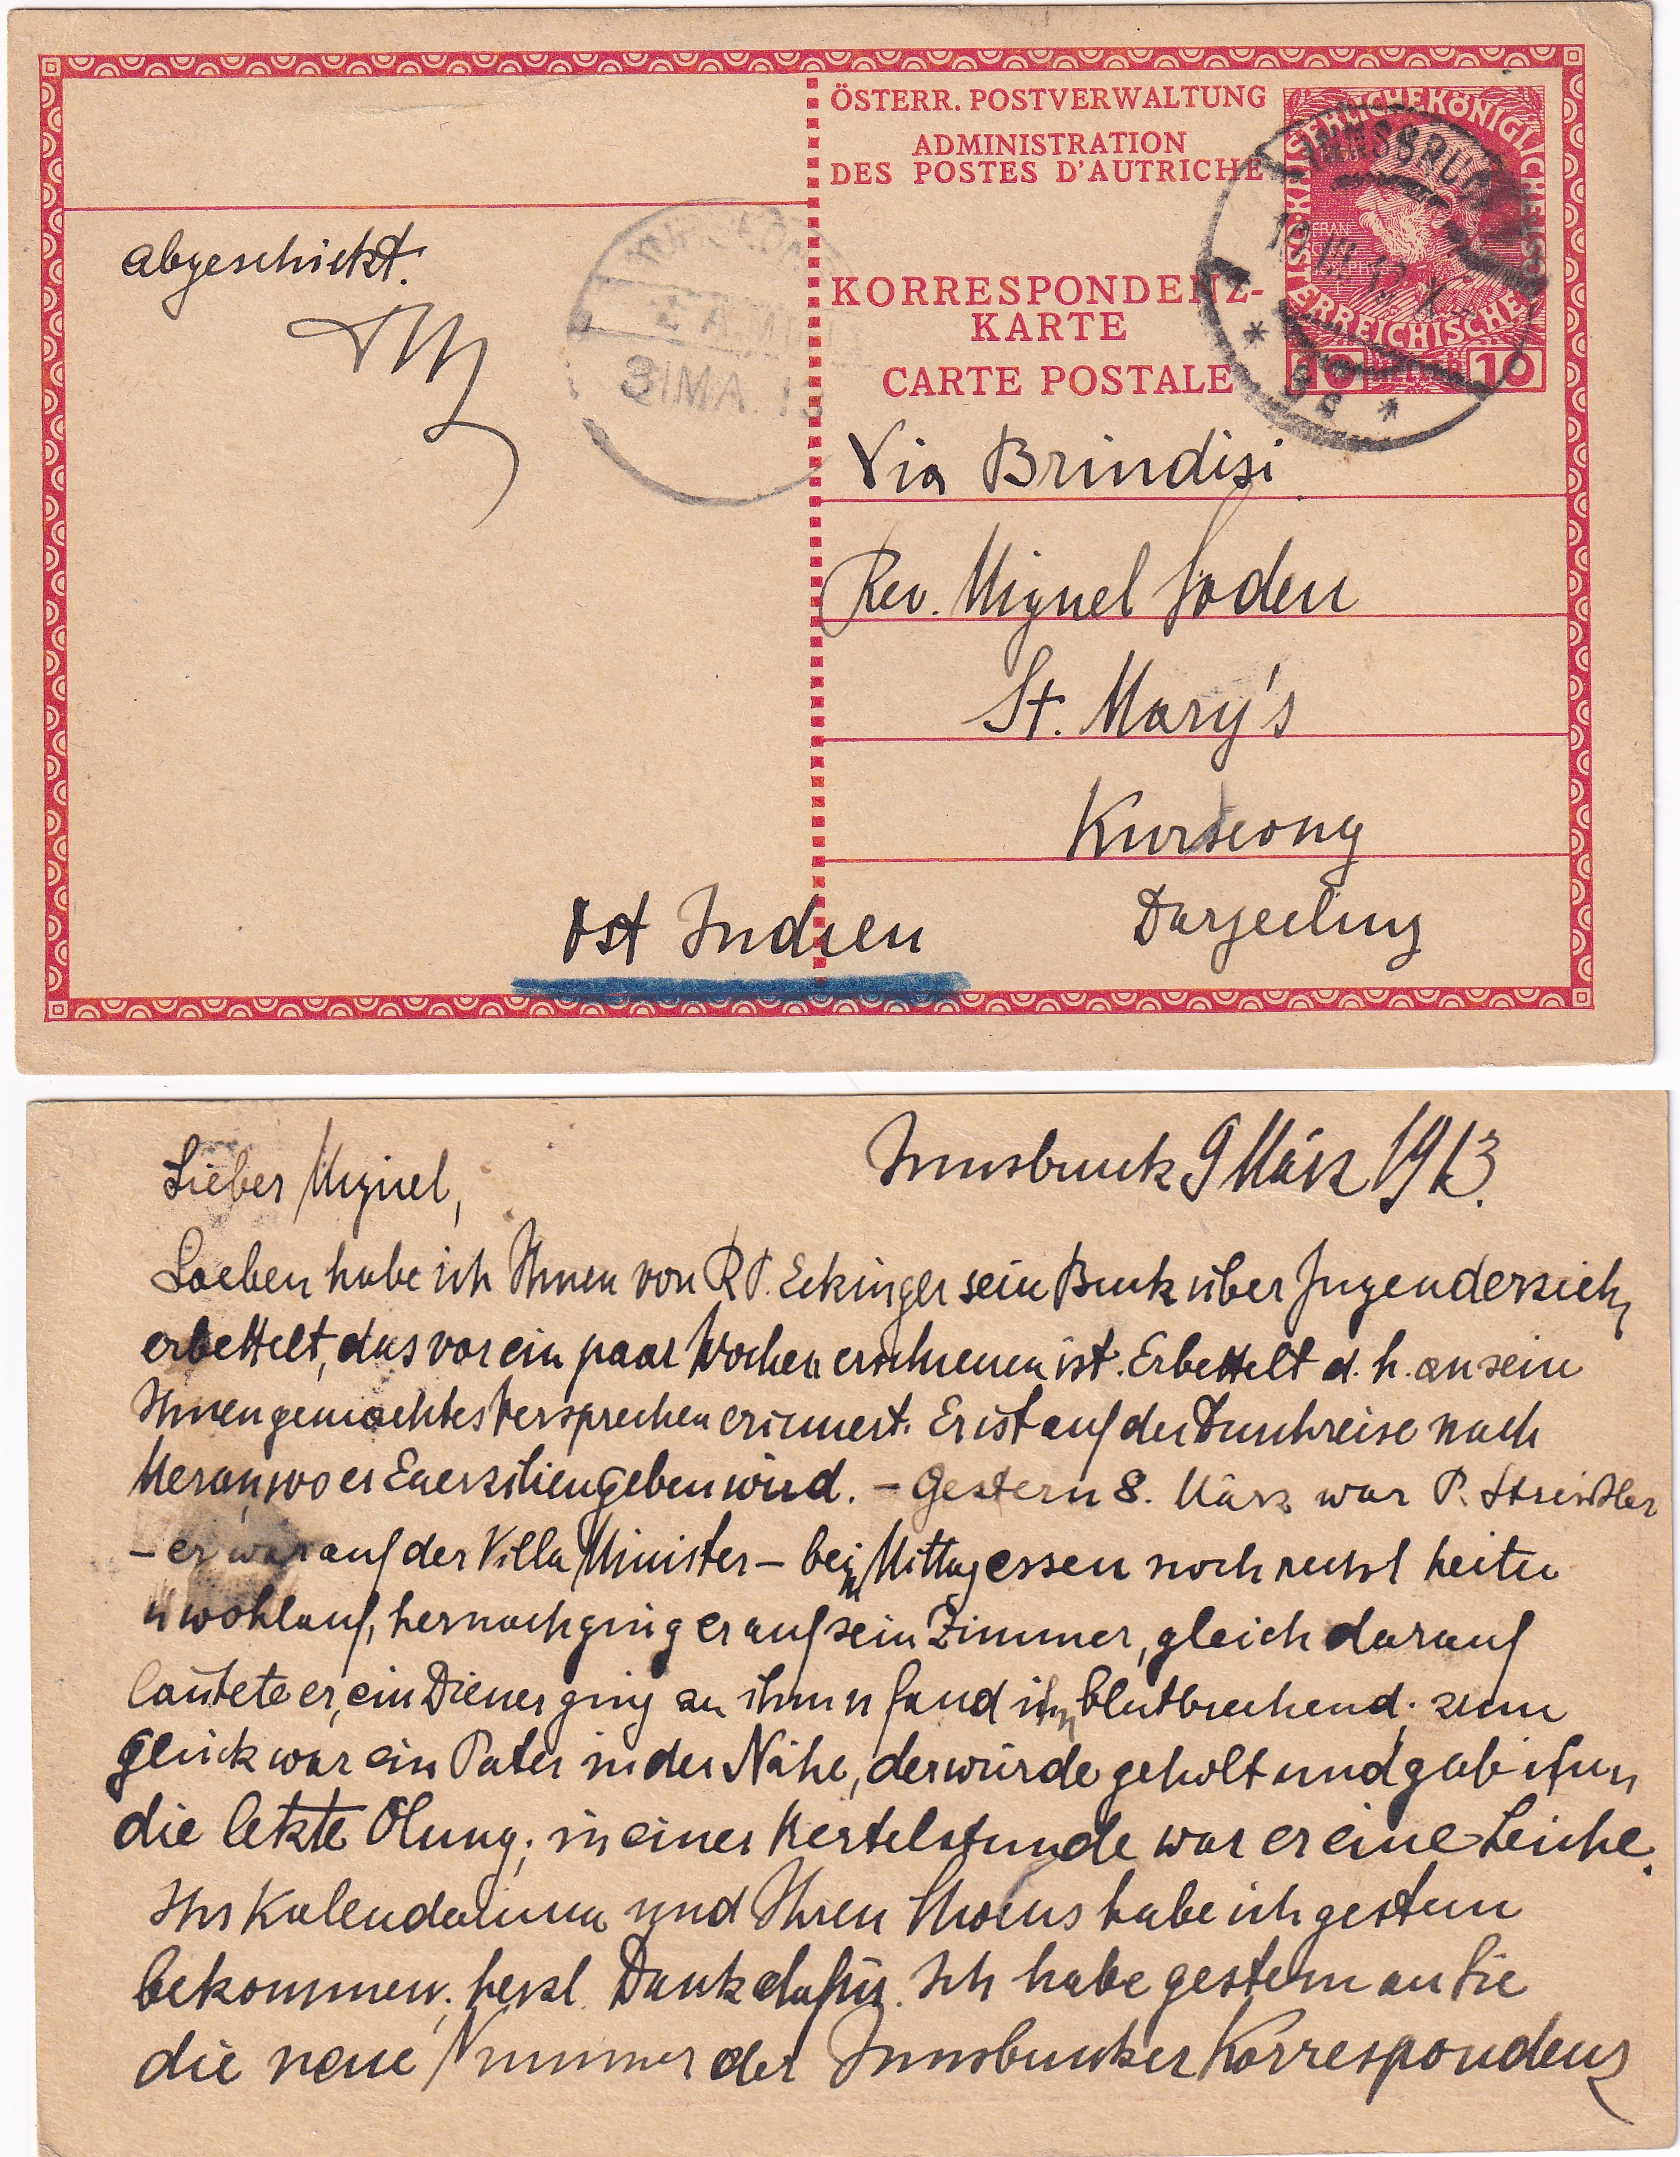 ÖSTERR. POSTVERWALTUNG
ADMINISTRATION
DES POSTES D'AUTRICHE
KAISERLICHEKÖNIGLICHE ÖSTERREICHISCHE POST
10 HELLER 10
INNSBRUCK
KORRESPONDENZ-
KARTE
CARTE POSTALE
abgeschickt.
31 MA 13
Via Brindisi
Rev. Miguel Soden
St. Mary's
Kurseong
Darjeeling
Ost Indien
Innsbruck 9 März 1913.
Lieber Miguel,
Soeben habe ich Ihnen von R P. Eckinger sein Buch über Jugenderzieh
erbettelt, das vor ein paar Wochen erschienen ist. Erbettelt d. h. an sein
Ihnen gemachtes Versprechen erinnert. Er ist auf der Durchreise nach
Meran, wo er Exerzitien geben wird. – Gestern 8. März war P.
– er war auf der Villa Minister – beim Mittagessen noch recht heiter
u wohlauf, hernach ging er auf sein Zimmer, gleich darauf
läutete er, ein Diener ging zu ihm u fand ihn blutbrechend; zum
Glück war ein Pater in der Nähe, der wurde geholt und gab ihm
die letzte Ölung; in einer Viertelstunde war er eine Leiche.
Ihr Kalendarium und Ihren habe ich gestern
bekommen; herzl. Dank dafür. Ich habe gestern an Sie
die neue Nummer der Innsbrucker Korrespondenz